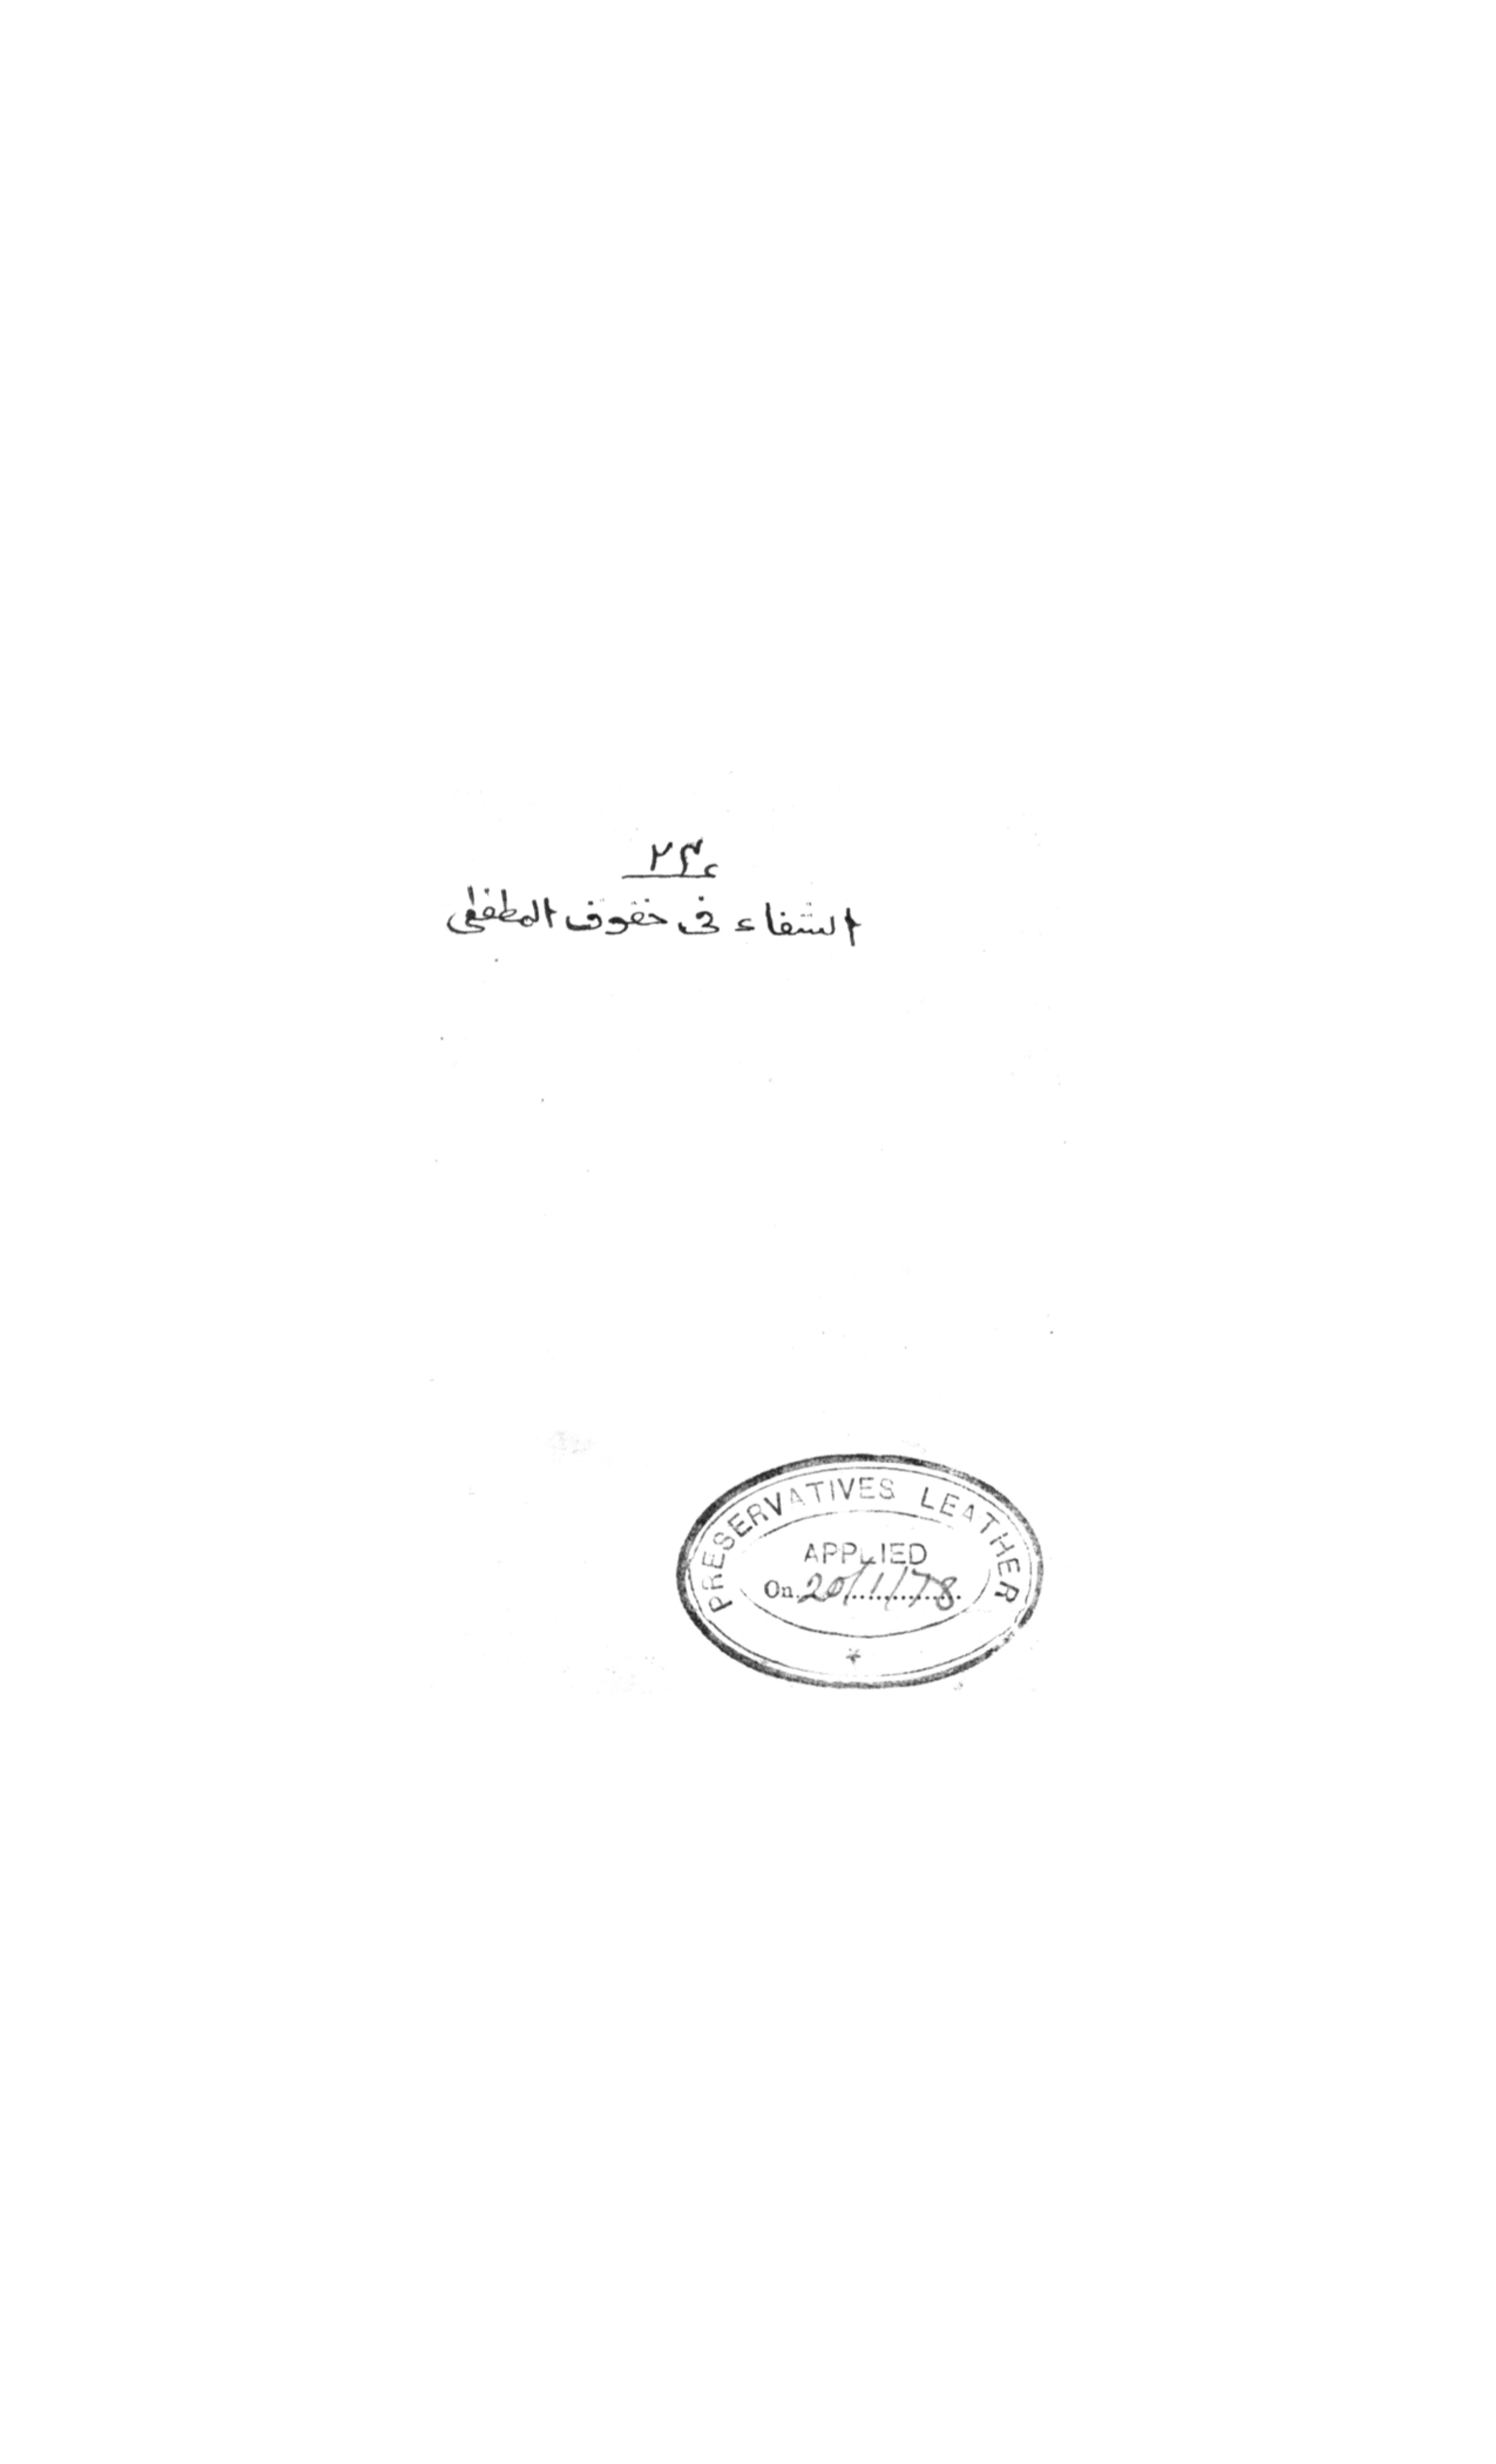 ٢٣٠
الشفاء فى خقوق المطفطى
PRESERVATIVES LEATHER
APPLIED
On 20/1/78